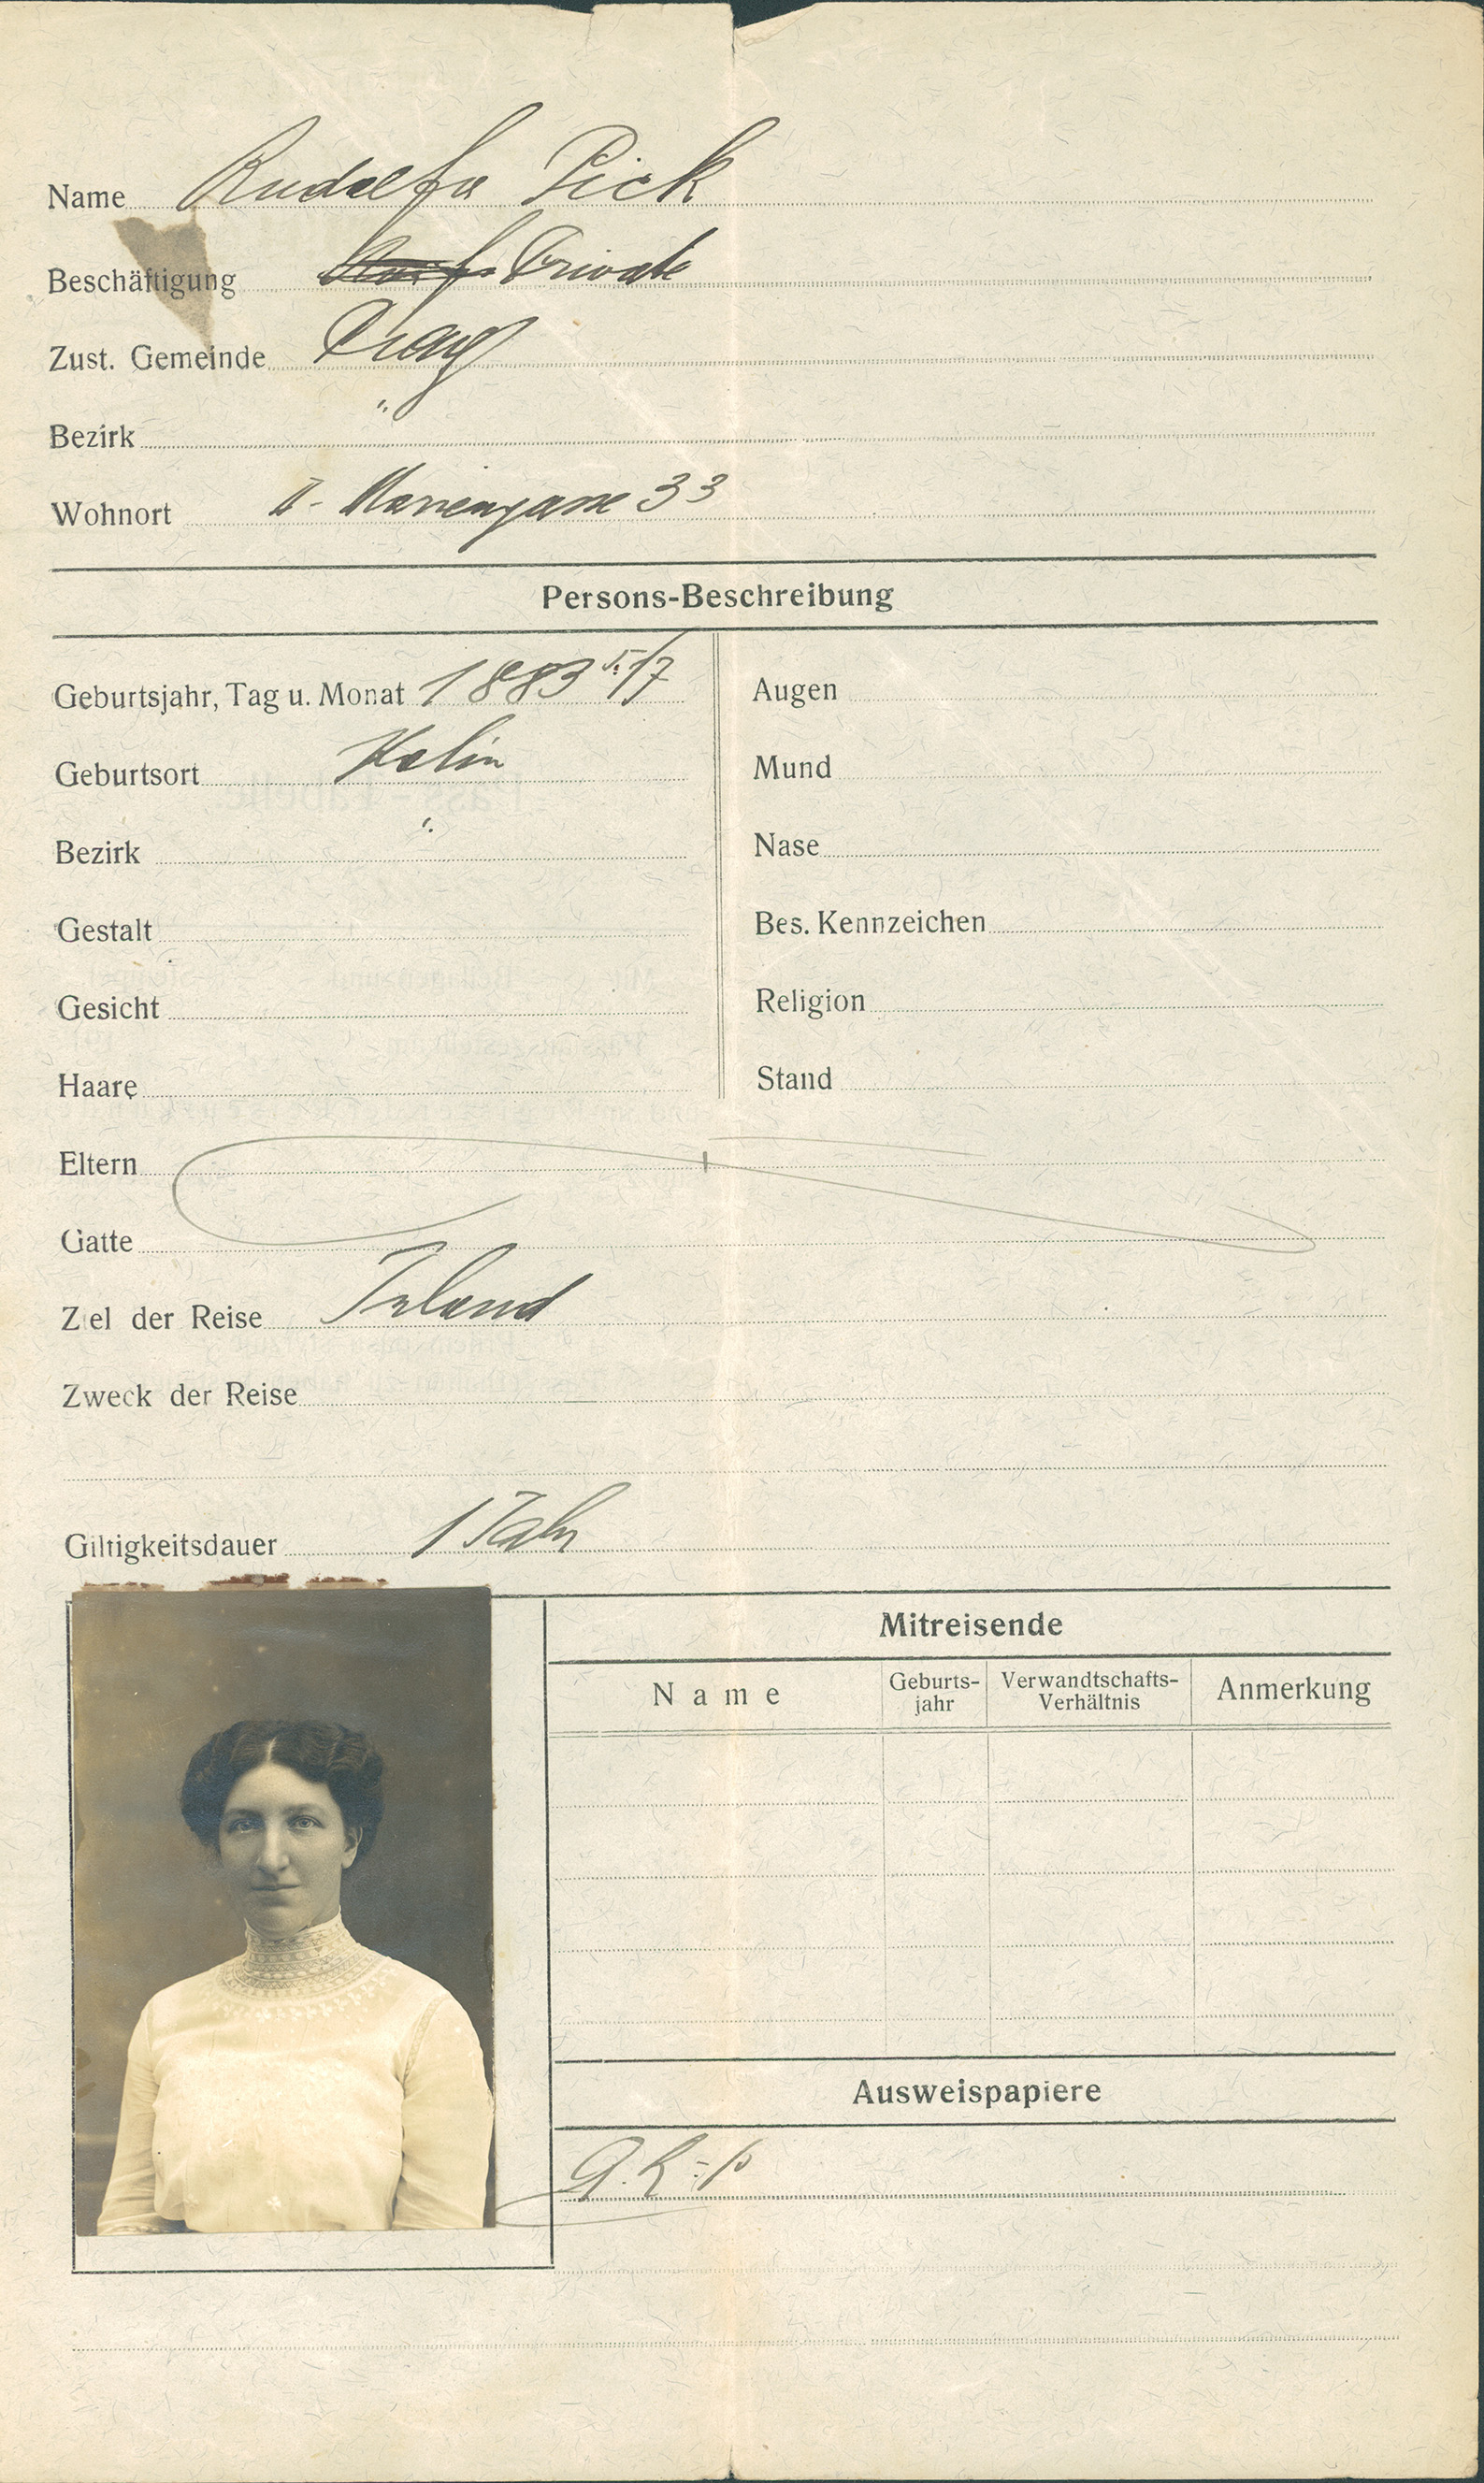 Name Rudolfa Pick
Beschäftigung Private
Zust. Gemeinde Prag
Bezirk "
Wohnort II - Mariengasse 33
Persons-Beschreibung
Geburtsjahr, Tag u. Monat 1883 5./7
Geburtsort Kolin
Bezirk "
Gestalt
Gesicht
Haare
Augen
Mund
Nase
Bes. Kennzeichen
Religion
Stand
Eltern
Gatte
Ziel der Reise Inland
Zweck der Reise
Giltigkeitsdauer 1 Jahr
Mitreisende
Name
Geburts-
jahr
Verwandtschafts-
Verhältnis
Anmerkung
Ausweispapiere